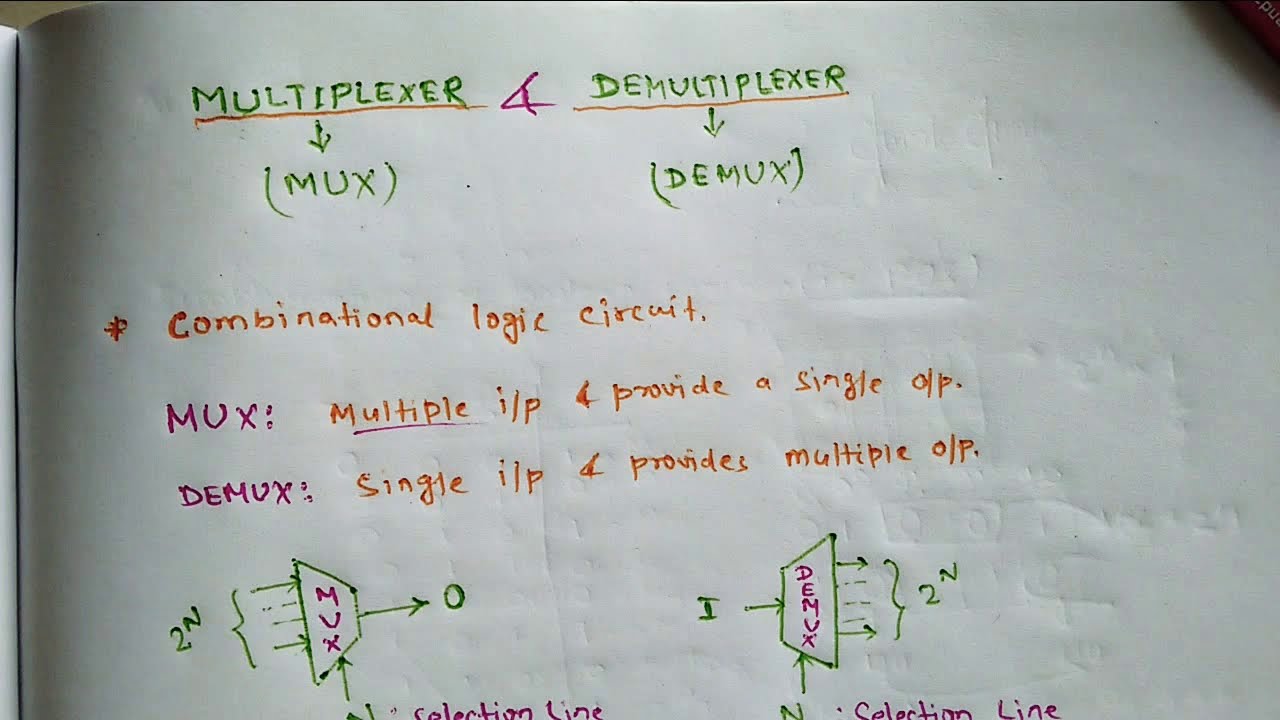 MULTIPLEXER & DEMULTIPLEXER
(MUX) (DEMUX)
* Combinational logic circuit.
MUX: Multiple i/p & provide a single o/p.
DEMUX: Single i/p & provides multiple o/p.
2^N MUX O
I DEMUX 2^N
N : Selection Line
N : Selection Line